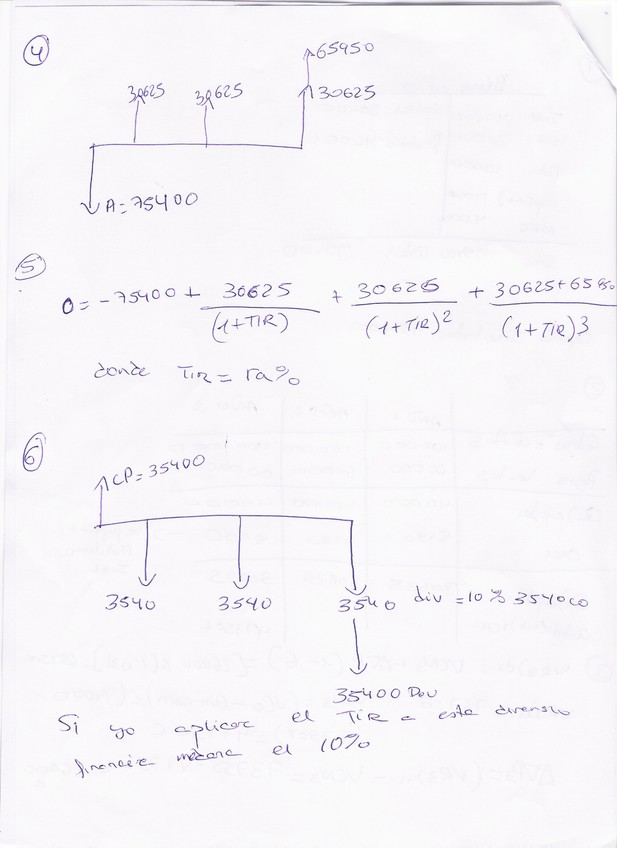 4
65950
30625 30625 30625
A=75400
5
0 = -75400 + 30625/(1+TIR) + 30625/(1+TIR)2 + 30625+65950/(1+TIR)3
donde TIR = ra%
6
CP=35400
3540 3540 3540 div =10% 35400
35400 Dev
Si yo aplicar el TIR a esta
financiera el 10%